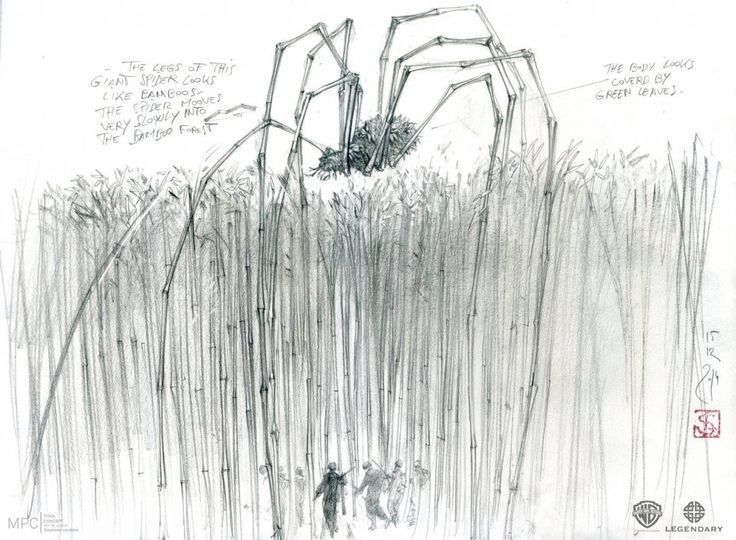 - THE LEGS OF THIS
GIANT SPIDER LOOKS
LIKE BAMBOOS-
THE SPIDER MOOVES
VERY SLOWLY INTO
THE BAMBOO FOREST
THE BODY LOOKS
COVERD BY
GREEN LEAVES.
15
12
2014
MPC
CONCEPT
WB
LEGENDARY